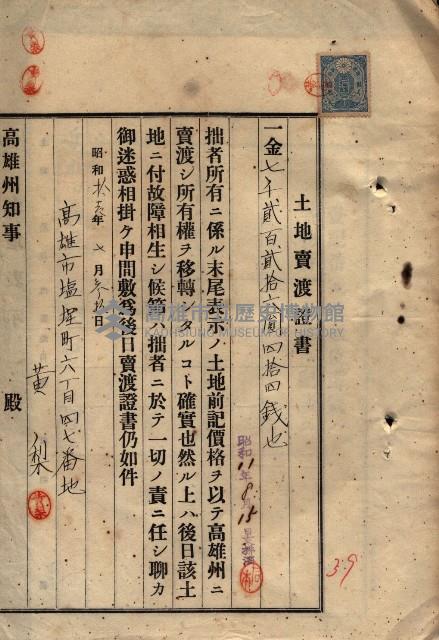 土地賣渡證書
一金七千貳百貳拾六圓四拾四錢也
拙者所有ニ係ル末尾表示ノ土地前記價格ヲ以テ高雄州ニ
賣渡シ所有權ヲ移轉シタルコト確實也然ル上ハ後日該土
地ニ付故障相生シ候節ハ拙者ニ於テ一切ノ責ニ任シ聊カ
御迷惑相掛ケ申間敷爲後日賣渡證書仍如件
昭和拾壱年七月 日
高雄市塩埕町六丁目四七番地
黄梨
高雄州知事 殿
昭和11年8 15
3.9
高雄市立歷史博物館
KAOHSIUNG MUSEUM OF HISTORY